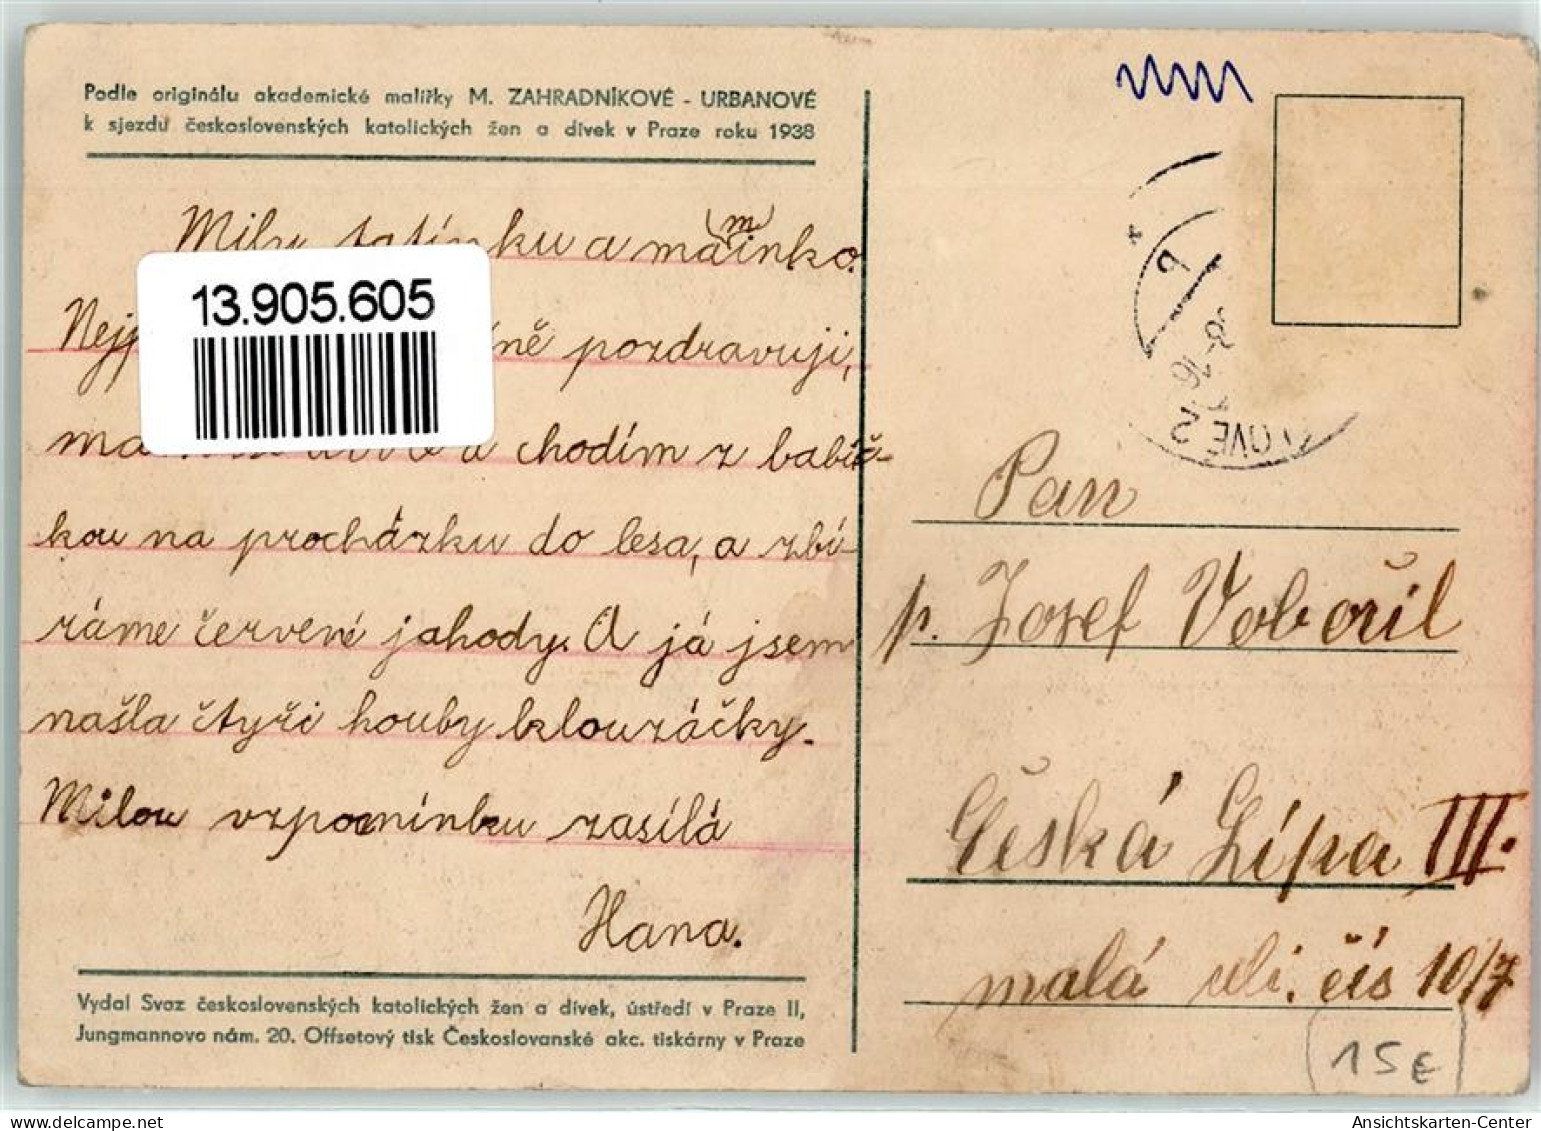 Podle originálu akademické malířky M. ZAHRADNÍKOVÉ - URBANOVÉ
k sjezdu československých katolických žen a dívek v Praze roku 1938
tatínku a maminko.
13.905.605
pozdravuji,
chodím z babič-
kou na procházku do lesa, a zbí-
ráme červené jahody. A já jsem
našla čtyři houby klouzáčky.
Milou vzpomínku zasílá
Hana.
Vydal Svaz československých katolických žen a dívek, ústředí v Praze II,
Jungmannovo nám. 20. Offsetový tisk Československé akc. tiskárny v Praze
OVÉ 2
Pan
p. Josef Vobořil
Česká Lípa III.
malá uli. čís 10/7
15€
Ansichtskarten-Center